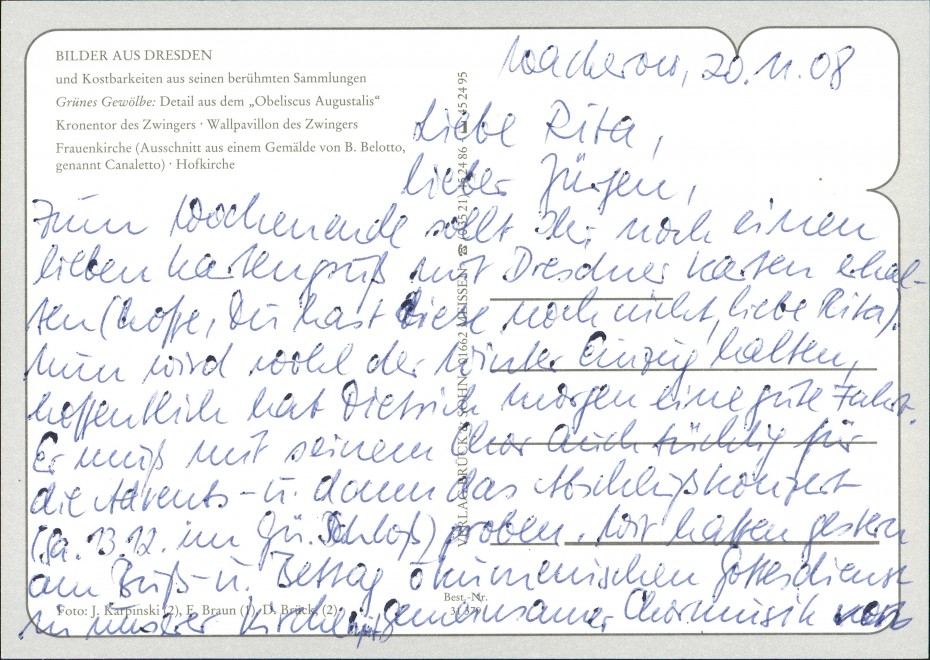 BILDER AUS DRESDEN
und Kostbarkeiten aus seinen berühmten Sammlungen
Grünes Gewölbe: Detail aus dem „Obeliscus Augustalis“
Kronentor des Zwingers · Wallpavillon des Zwingers
Frauenkirche (Ausschnitt aus einem Gemälde von B. Belotto,
genannt Canaletto) · Hofkirche
20.11.08
Liebe Rita,
lieber Jürgen,
Zum Wochenende sollt Ihr noch einen
lieben Kartengruß mit Dresdner Karten erhal-
ten (hoffe, Du hast diese noch nicht, liebe Rita).
Nun wird wohl der Winter Einzug halten,
hoffentlich hat Dietrich morgen eine gute Fahrt.
Er muß mit seinem Chor auch tüchtig für
die Advents- u. dann das Abschlußkonzert
(Sa. 13.12. im Gü. Schloß) proben. Wir hatten gestern
am Buß- u. Bettag ökumenischen Gottesdienst
in unserer Kirche mit gemeinsamer Chormusik
VERLAG BRÜCK & SOHN · 01662 MEISSEN
Foto: J. Karpinski (2), E. Braun (1), D. Brück, (2)
Best.-Nr.